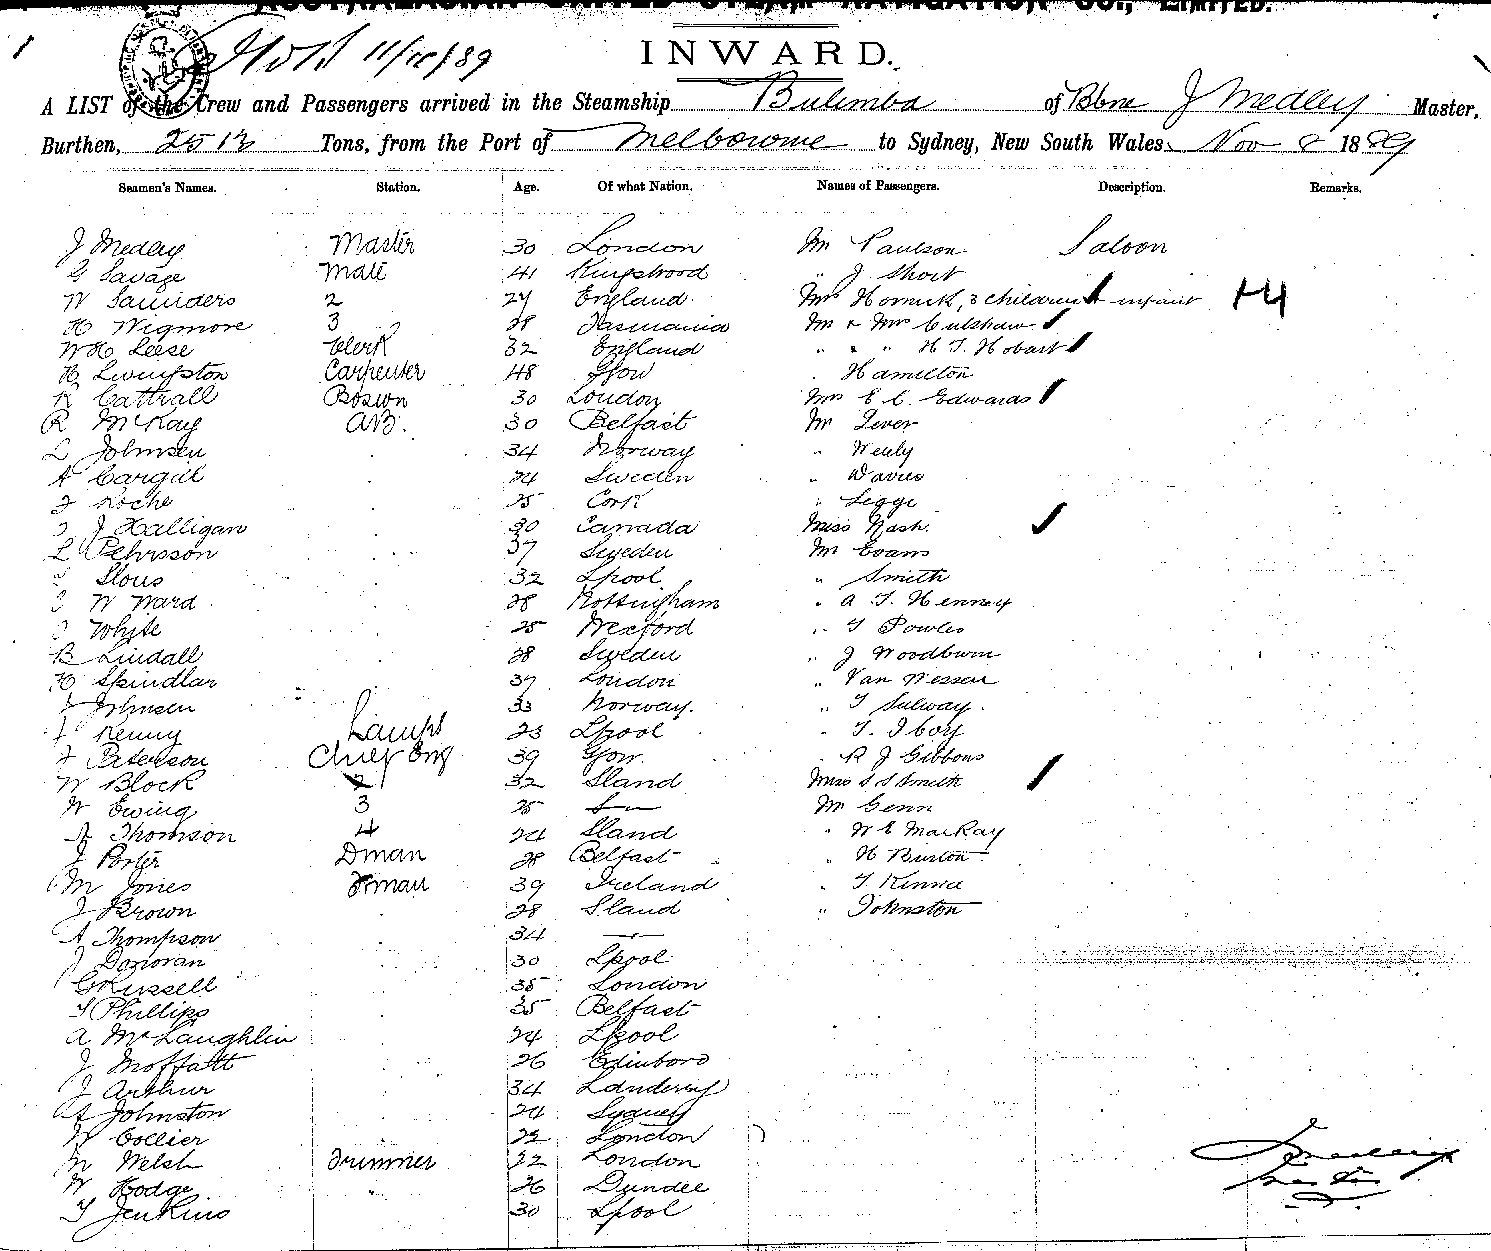 AUSTRALASIAN UNITED STEAM NAVIGATION CO., LIMITED.
11/11/89
INWARD.
A LIST of the Crew and Passengers arrived in the Steamship Bulimba of Bbne J Medley Master,
Burthen, 2513 Tons, from the Port of Melbourne to Sydney, New South Wales Nov 8 1889
Seamen's Names. Station. Age. Of what Nation. Names of Passengers. Description. Remarks.
J Medley Master 30 London Mr Paulson Saloon
G Savage Mate 41 Kingswood " J Short
W Saunders 2 27 England Mrs 3 children & infant +4
H Wigmore 3 28 Tasmania Mr & Mrs Culshaw
WH Leese Clerk 32 England " " " H T Hobart
H Livingston Carpenter 48 Gow Hamilton
R Cattrall Boswn 30 London Mrs E C Edwards
R McKay AB. 30 Belfast Mr Lever
L Johnsen 34 Norway "
A Cargill 24 Sweden " Davies
Roche 25 Cork " Legge
J Halligan 30 Canada Miss Nash.
L Pehrsson 37 Sweden Mr Evans
32 Lpool " Smith
W Ward 28 Nottingham " A T Henney
White 25 Wexford " T Powles
B Lindall 28 Sweden " J Woodburn
H Spindlar 37 London " Van Wessen
J Johnsen 33 Norway. " T Sulway.
Kenny Lamps 23 Lpool "
Peterson Chief Eng 39 Gow. " R J Gibbons
W Block 2 32 Sland Miss S S Smith
W Ewing 3 25 Mr Genn
A Thomson 4 24 Sland " W E MacKay
J Porter Dman 28 Belfast " H Burton
M Jones Fman 39 Ireland "
J Brown 28 Sland " Johnston
A Thompson 34
J Donovan 30 Lpool
G Russell 35 London
T Phillips 35 Belfast
A McLaughlin 24 Lpool
J Moffatt 26 Edinboro
J Arthur 34 Londerry
A Johnston 24 Sydney
W Collier 22 London
M Welsh Trimmer 22 London
W Hodge " 26 Dundee
T Jenkins 30 Lpool
J Medley
Master